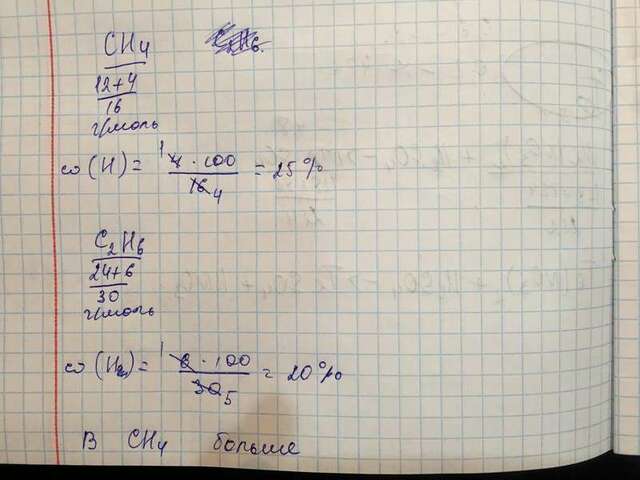 CH₄
12+4
16
г/моль
ω(H) = 4 · 100 / 16 = 25%
1 4
C₂H₆
24+6
30
г/моль
ω(H₂) = 6 · 100 / 30 = 20%
1 5
В CH₄ больше